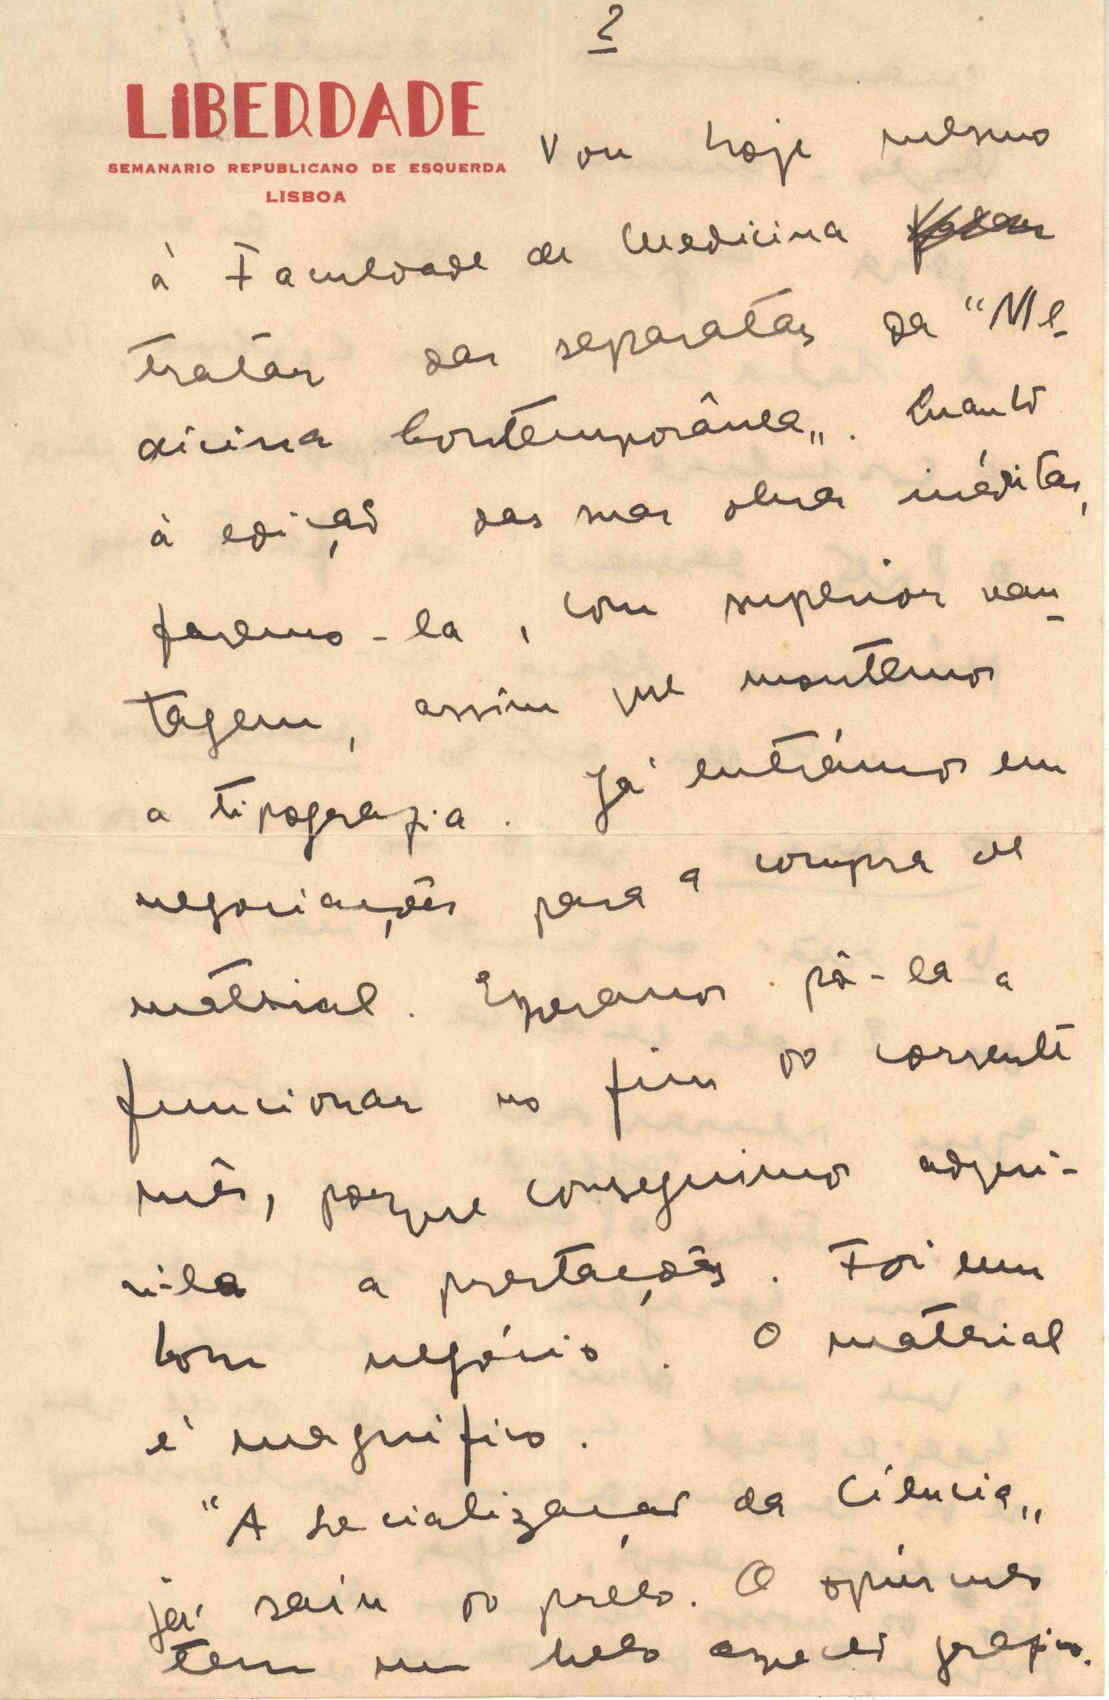 2
LIBERDADE
SEMANARIO REPUBLICANO DE ESQUERDA
LISBOA
Vou hoje mesmo
à Faculdade de Medicina
tratar das separatas da "Me-
dicina Contemporânea„. Quanto
à edição das suas obras inéditas,
faremo-la, com superior van-
tagem, assim que montemos
a tipografia. Já entrámos em
negociações para a compra de
material. Esperamos pô-la a
funcionar no fim do corrente
mês, porque conseguimos adqui-
ri-la a prestações. Foi um
bom negócio. O material
é magnífico.
"A socialização da Ciência„
já saíu do prélo. O opúsculo
tem um belo aspecto gráfico.